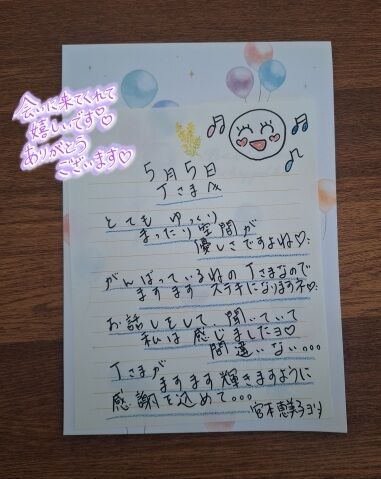 会いに来てくれて
嬉しいです♡
ありがとう
ございます♡
5月5日
Tさま へ
とても ゆっくり
まったり空間が
優しさですよね♡
がんばっているねの Tさまなので
ますます ステキになりますネ♡
お話しをして、聞いていて
私は感じましたヨ♡
間違いない・・・
Tさまが
ますます輝きますように
感謝を込めて・・・
宮本恵美子ヨリ